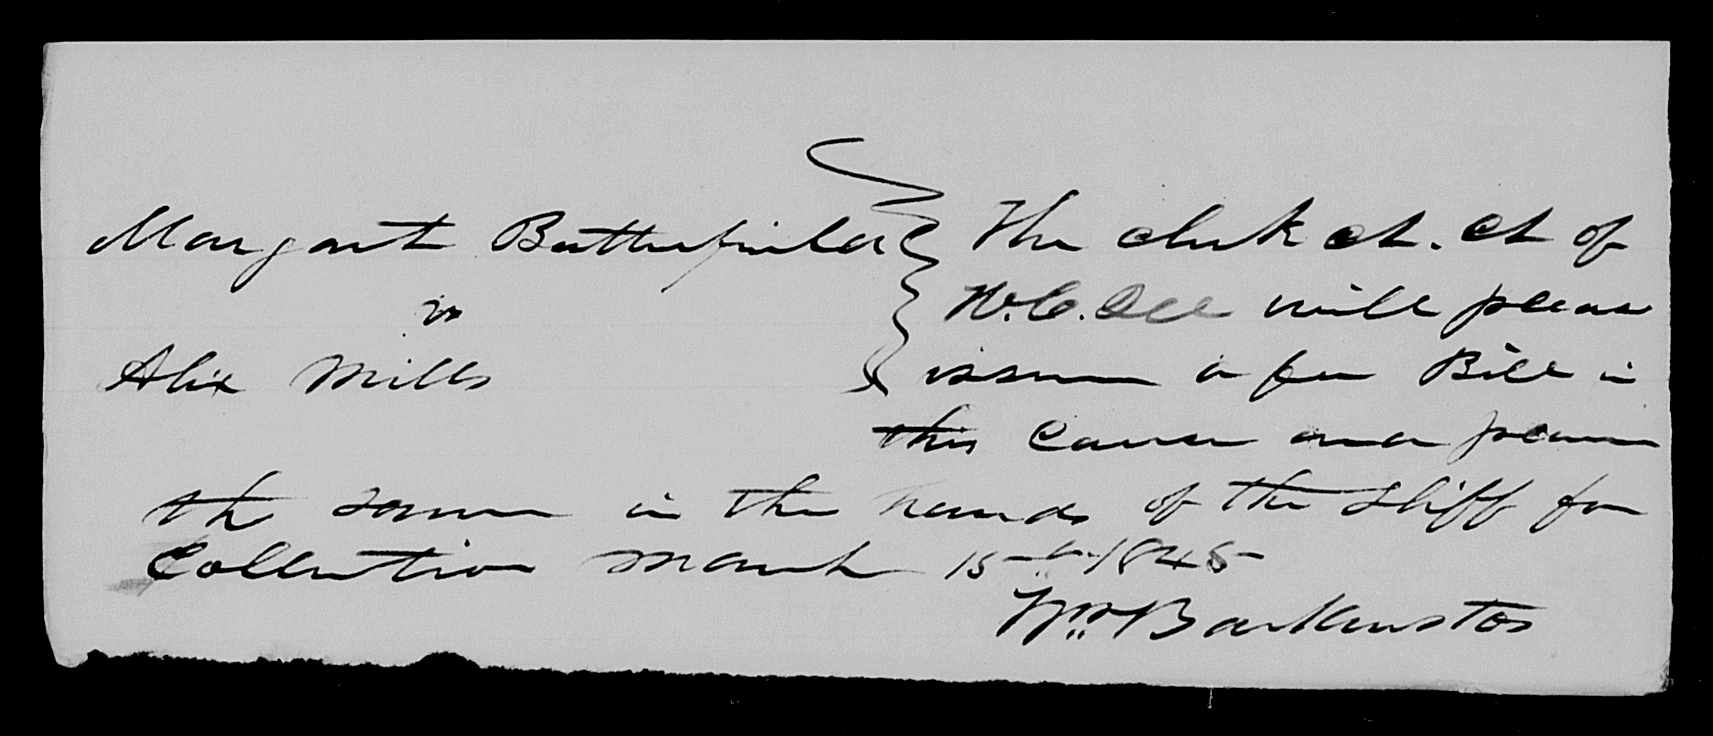 Margart Butterfield
vs
Alix Mills
The clerk ct. ct of
W.C. Ill will pleas
issue a fee Bill in
this Cause and place
the same in the hands of the shiff for
Collection March 15th 1845
Wm Backenstos